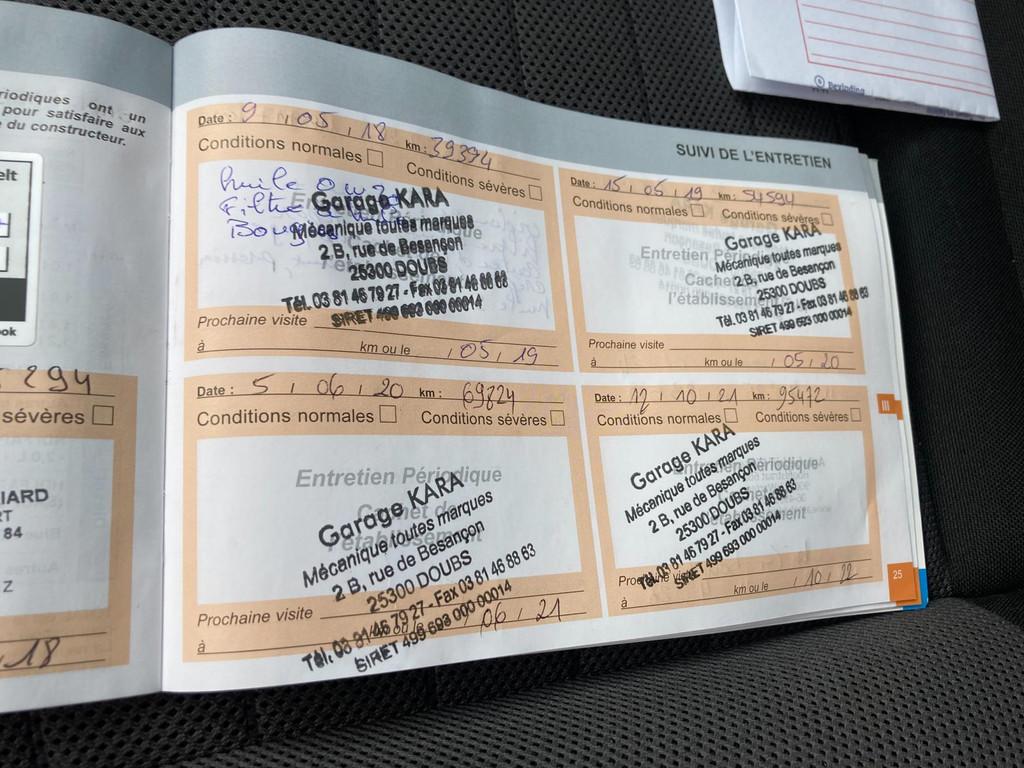 riodiques ont un
pour satisfaire aux
e du constructeur.
elt
ok
294
sévères
IARD
RT
84
Z
18
SUIVI DE L'ENTRETIEN
Date : 9 05 18 km : 39394
Conditions normales
Conditions sévères
huile 0w
Filtre
Boug
Garage KARA
Mécanique toutes marques
2 B, rue de Besançon
25300 DOUBS
Tél. 03 81 46 79 27 - Fax 03 81 46 88 63
SIRET 499 693 000 00014
Prochaine visite
à km ou le 05 19
Date : 15 05 19 km : 54594
Conditions normales Conditions sévères
Entretien Périodique
Cachet
l'établissement
Garage KARA
Mécanique toutes marques
2 B, rue de Besançon
25300 DOUBS
Tél. 03 81 46 79 27 - Fax 03 81 46 88 63
SIRET 499 693 000 00014
Prochaine visite
à km ou le 05 20
Date : 5 06 20 km : 69824
Conditions normales Conditions sévères
Entretien Périodique
Cachet de
l'établissement
Garage KARA
Mécanique toutes marques
2 B, rue de Besançon
25300 DOUBS
Tél. 03 81 46 79 27 - Fax 03 81 46 88 63
SIRET 499 693 000 00014
Prochaine visite
à 06 21
Date : 12 10 21 km : 95472
Conditions normales Conditions sévères
Entretien Périodique
Garage KARA
Mécanique toutes marques
2 B, rue de Besançon
25300 DOUBS
Tél. 03 81 46 79 27 - Fax 03 81 46 88 63
SIRET 499 693 000 00014
Prochaine visite
à km ou le 10 22
III
25